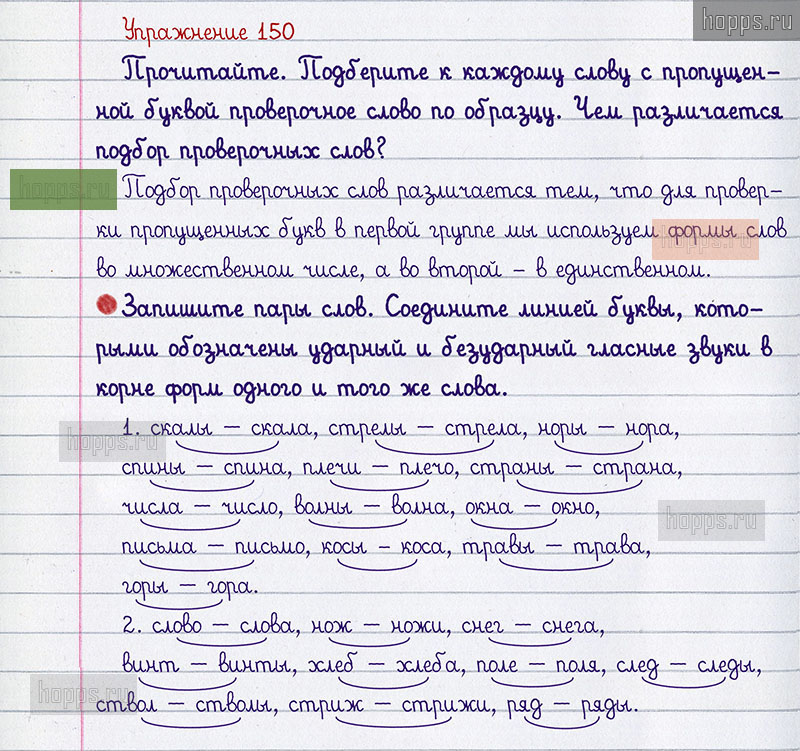 hopps.ru
Упражнение 150
Прочитайте. Подберите к каждому слову с пропущен-
ной буквой проверочное слово по образцу. Чем различается
подбор проверочных слов?
hopps.ru
Подбор проверочных слов различается тем, что для провер-
ки пропущенных букв в первой группе мы используем формы слов
hopps.ru
во множественном числе, а во второй – в единственном.
Запишите пары слов. Соедините линией буквы, кото-
рыми обозначены ударный и безударный гласные звуки в
корне форм одного и того же слова.
1. скалы – скала, стрелы – стрела, норы – нора,
hopps.ru
спины – спина, плечи – плечо, страны – страна,
числа – число, волны – волна, окна – окно,
hopps.ru
письма – письмо, косы – коса, травы – трава,
горы – гора.
2. слово – слова, нож – ножи, снег – снега,
винт – винты, хлеб – хлеба, поле – поля, след – следы,
hopps.ru
ствол – стволы, стриж – стрижи, ряд – ряды.